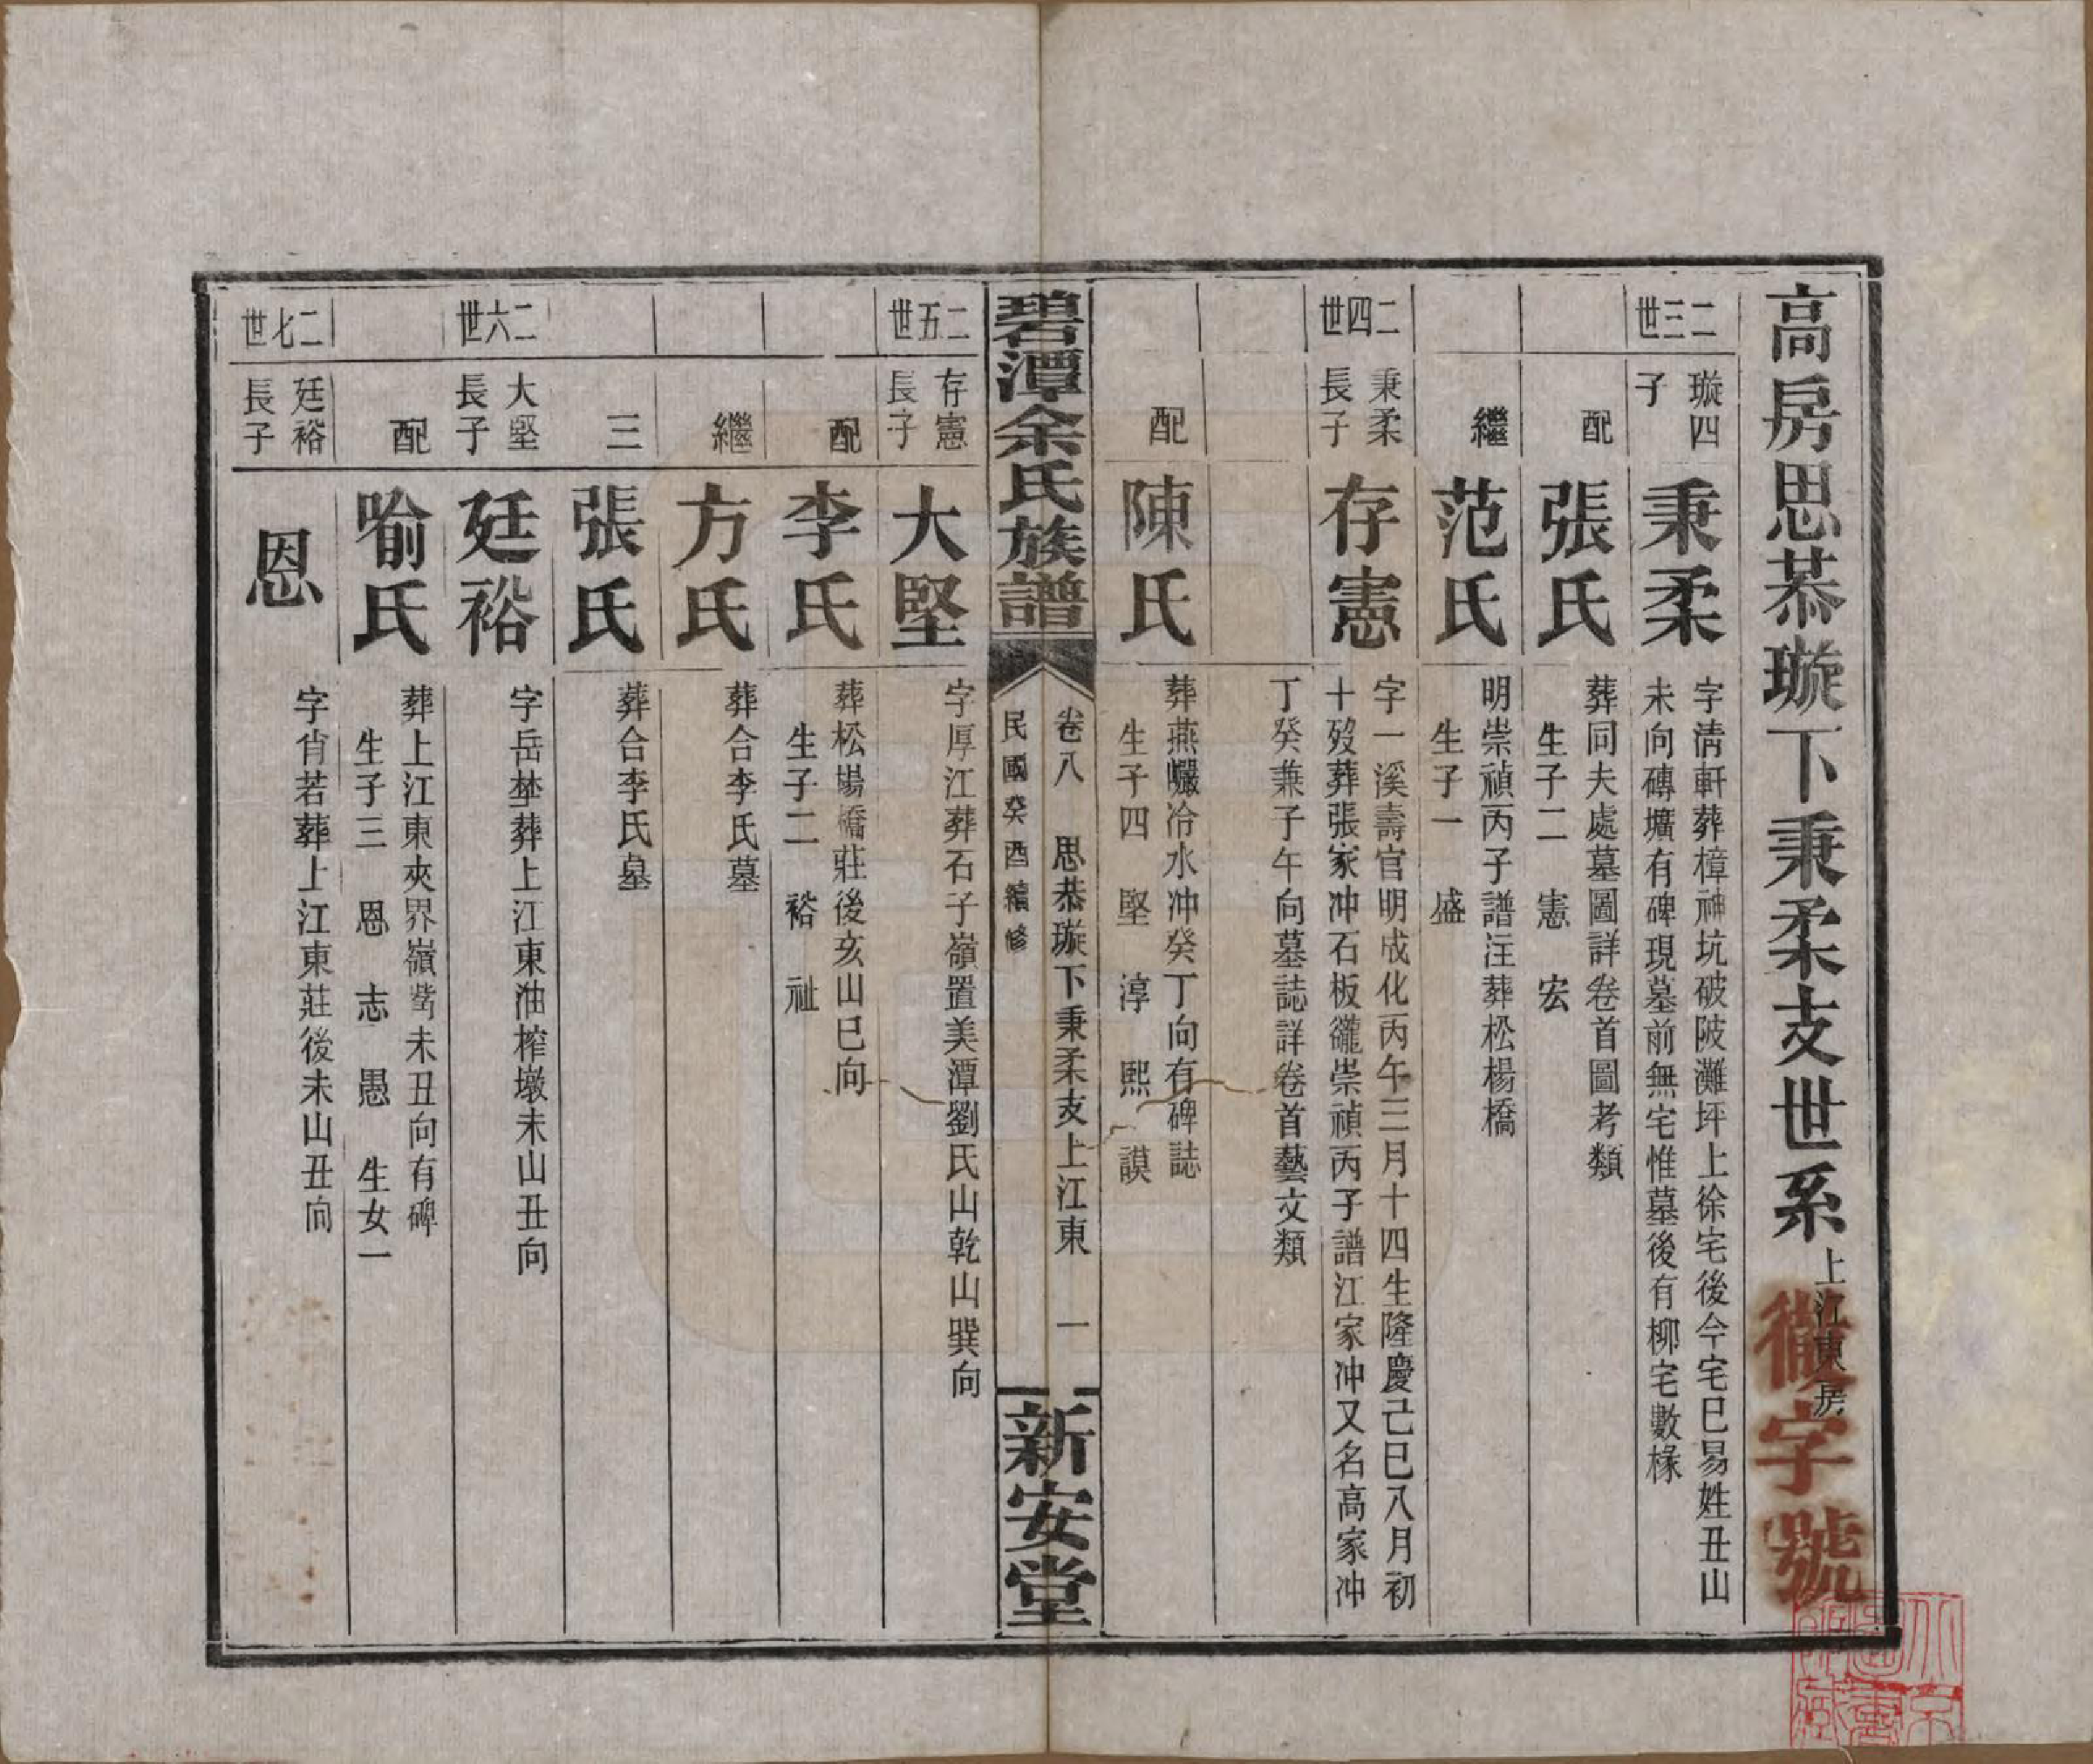 高房思恭璇下秉柔支世系 上江東房
徽字號
二三世
璇四
子
秉柔
字淸軒葬樟神坑破陂灘坪上徐宅後今宅巳易姓丑山
未向磚壙有碑現墓前無宅惟墓後有柳宅數椽
配
張氏
葬同夫處墓圖詳卷首圖考類
生子二 憲 宏
繼
范氏
明崇禎丙子譜注葬松楊橋
生子一 盛
二四世
秉柔
長子
存憲
字一溪壽官明成化丙午三月十四生隆慶己巳八月初
十歿葬張家冲石板𥖁崇禎丙子譜江家冲又名高家冲
丁癸兼子午向墓誌詳卷首藝文類
配
陳氏
葬燕巘冷水冲癸丁向有碑誌
生子四 堅 淳 熙 謨
碧潭余氏族譜
卷八 思恭璇下秉柔支上江東 一
民國癸酉續修
新安堂
二五世
存憲
長子
大堅
字厚江葬石子嶺置美潭劉氏山乾山巽向
配
李氏
葬松楊橋莊後亥山巳向
生子二 裕 祉
繼
方氏
葬合李氏墓
三
張氏
葬合李氏墓
二六世
大堅
長子
廷裕
字岳埜葬上江東油榨墩未山丑向
配
喻氏
葬上江東夾界嶺嘴未丑向有碑
生子三 恩 志 愚 生女一
二七世
廷裕
長子
恩
字肯若葬上江東莊後未山丑向